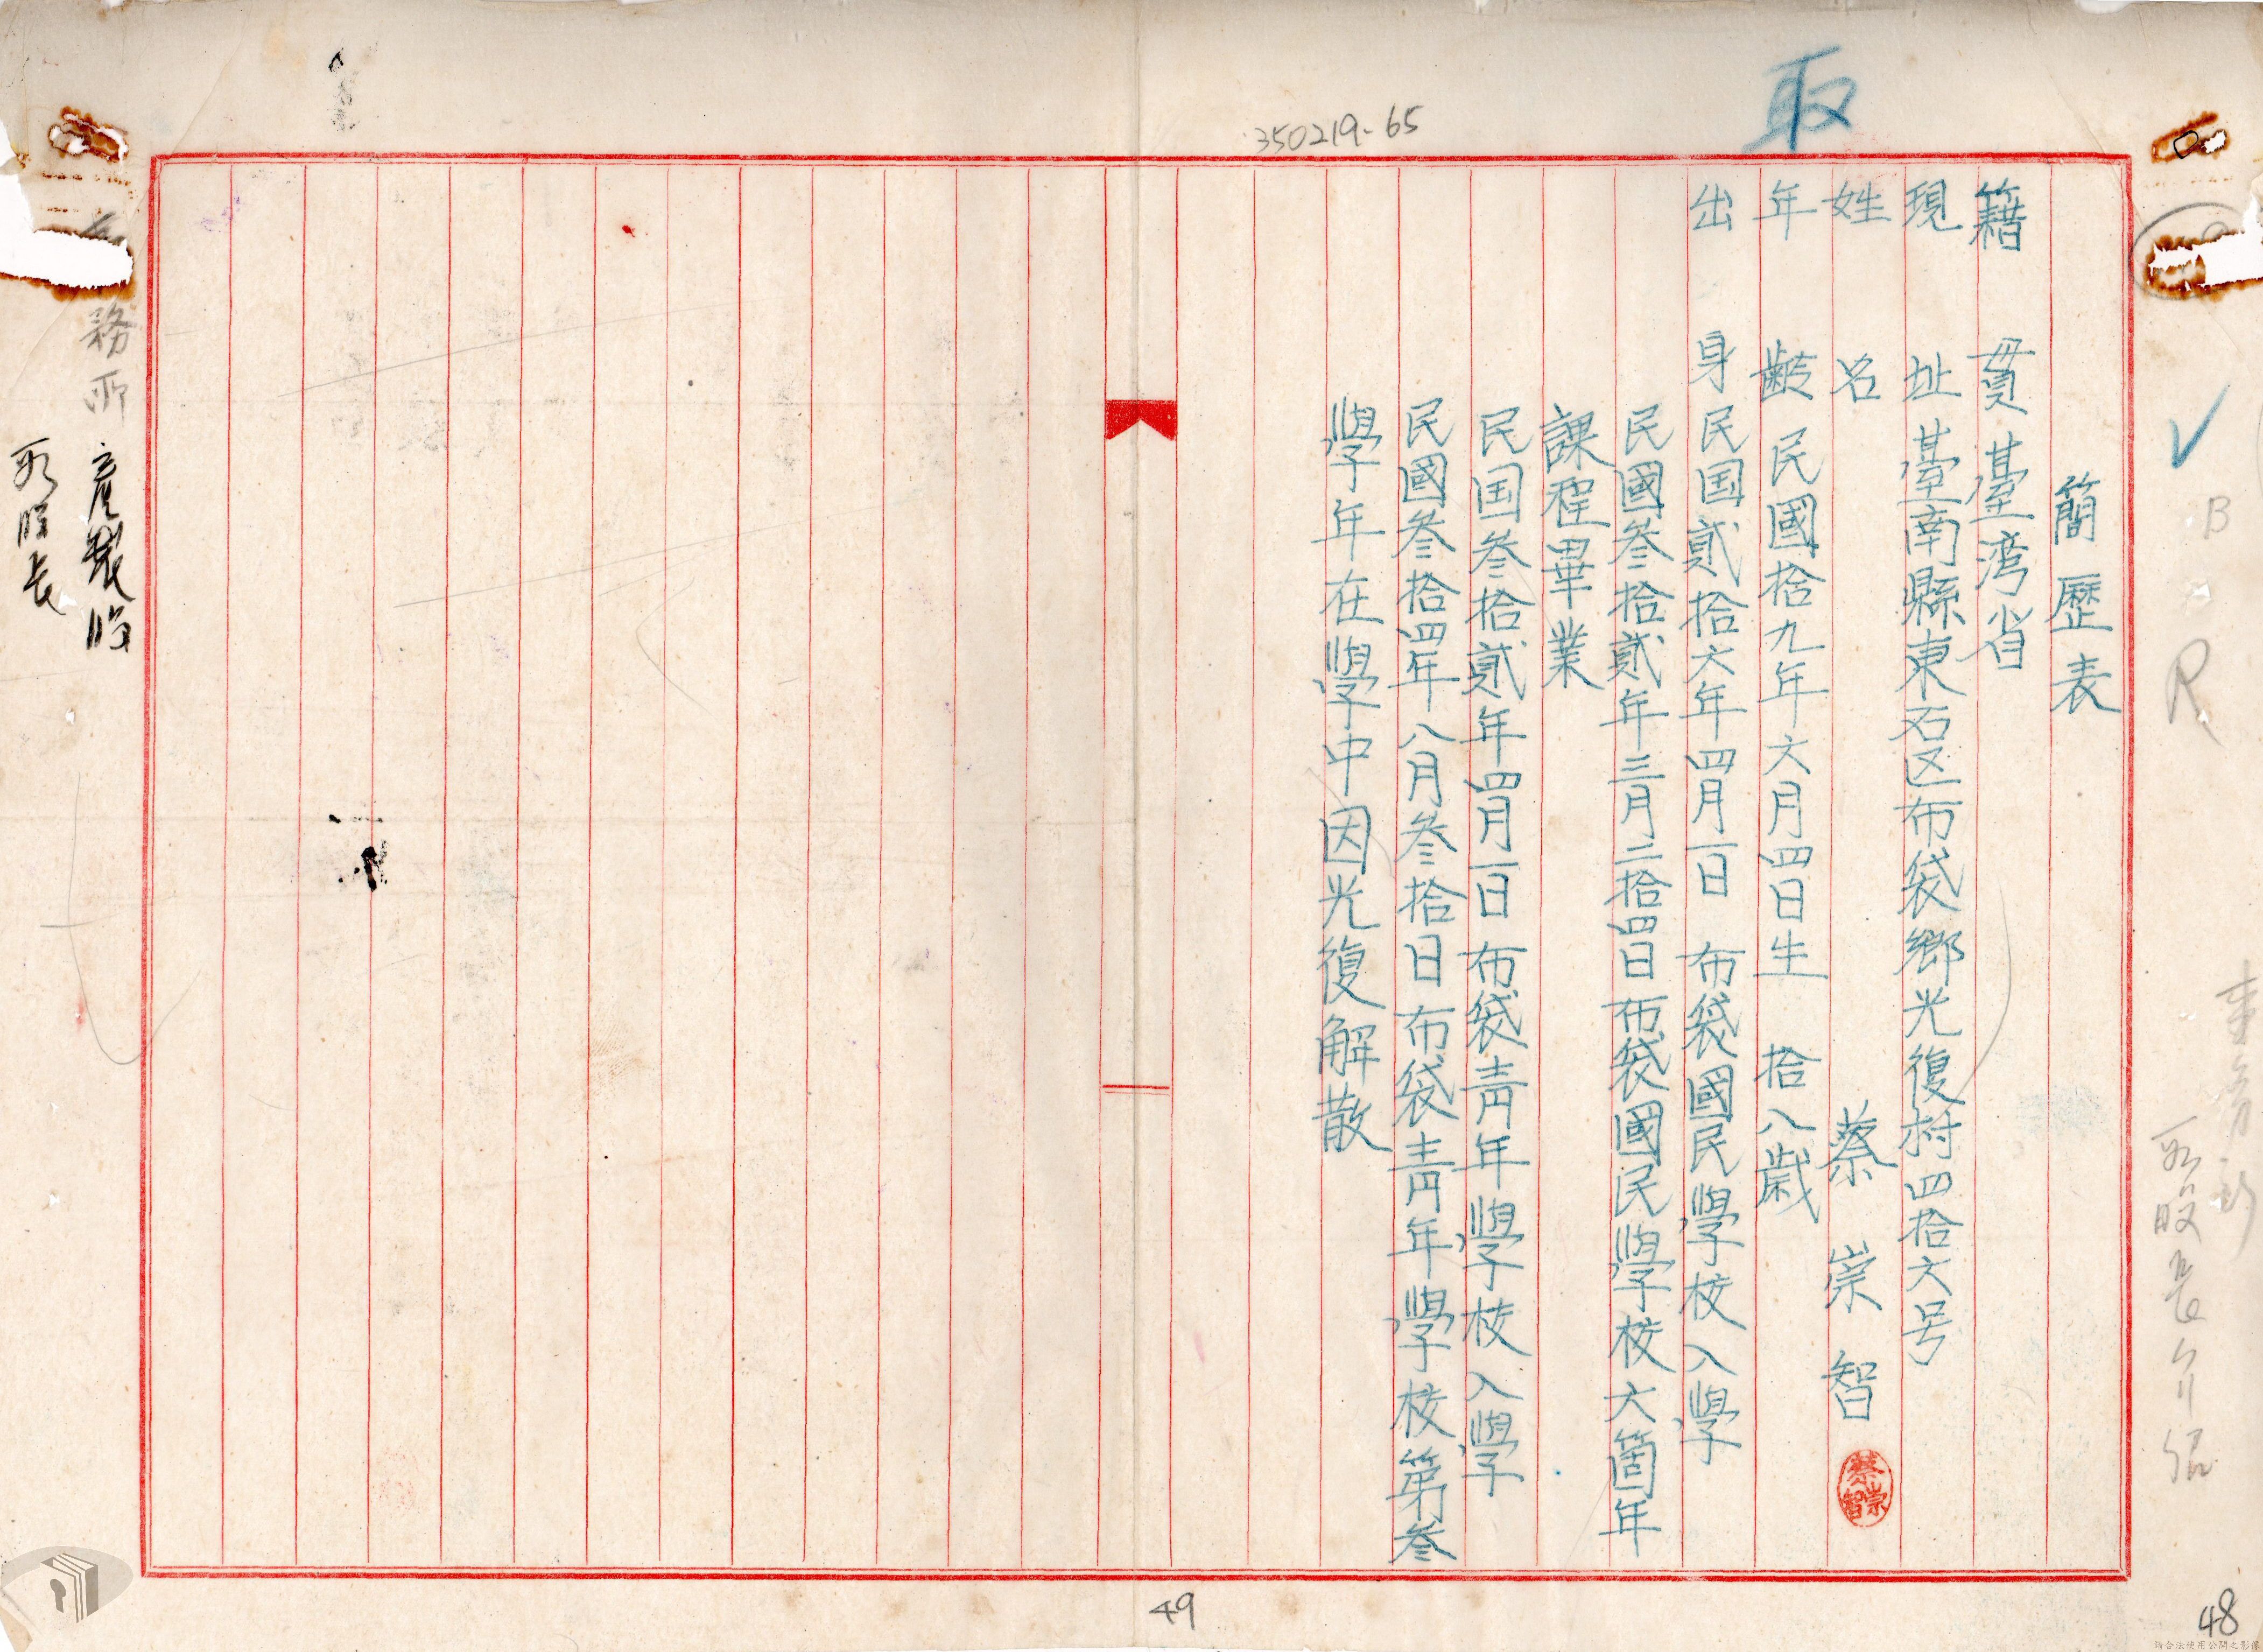 取
350219-65
簡歷表
籍貫 臺湾省
現址 臺南縣東石区布袋鄉光復村四拾六号
姓名 蔡崇智
蔡崇智
年齡 民國拾九年六月四日生 拾八歲
出身 民国貳拾六年四月一日 布袋國民學校入學
民國叁拾貳年三月二拾四日布袋國民學校六箇年
課程畢業
民国叁拾貳年四月一日布袋青年學校入學
民國叁拾四年八月叁拾日布袋青年學校第叁
學年在學中因光復解散
B
R
股長介紹
務所
股長
49
48
請合法使用公開之影像